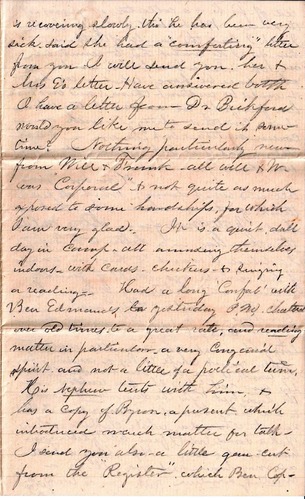 is recovering slowly, tho' he has been very
sick, said she had a "comforting" letter
from you I will send you her &
Mrs E's letter. Have answered both
I have a letter from Dr. Bickford
would you like me to send it some
time? Nothing particularly new
from Will & Frank - all well &
was Corporal & not quite as much
exposed to some hardships, for which
I am very glad. It is a quiet dull
day in Camp - all amusing themselves
indoors - with cards - checkers - & singing
& reading - Had a long "Confab" with
Ben Edmands, yesterday P.M. chatted
over old times, to a great rate, and reading
matter in particular, a very congenial
spirit and not a little of a political turn.
His nephew tents with him &
has a copy of Byron, a present, which
introduced much matter for talk -
I send you also a little gem cut
from the "Register", which Ben. Cop-